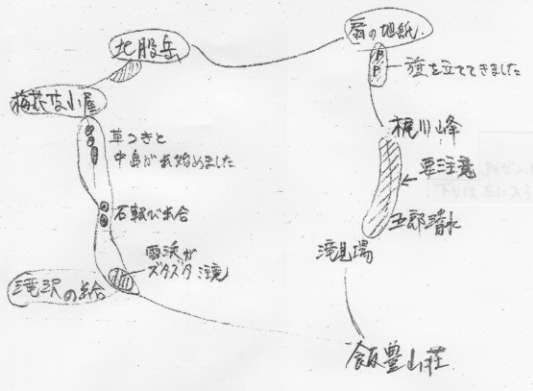 北股岳
扇の地紙
旗を立ててきました
梅花皮小屋
草つきと
中島が出始めました
梶川峰
要注意
石転び出合
五郎清水
雪渓が
ズタズタ 注意
滝見場
滝沢の出合
飯豊山荘